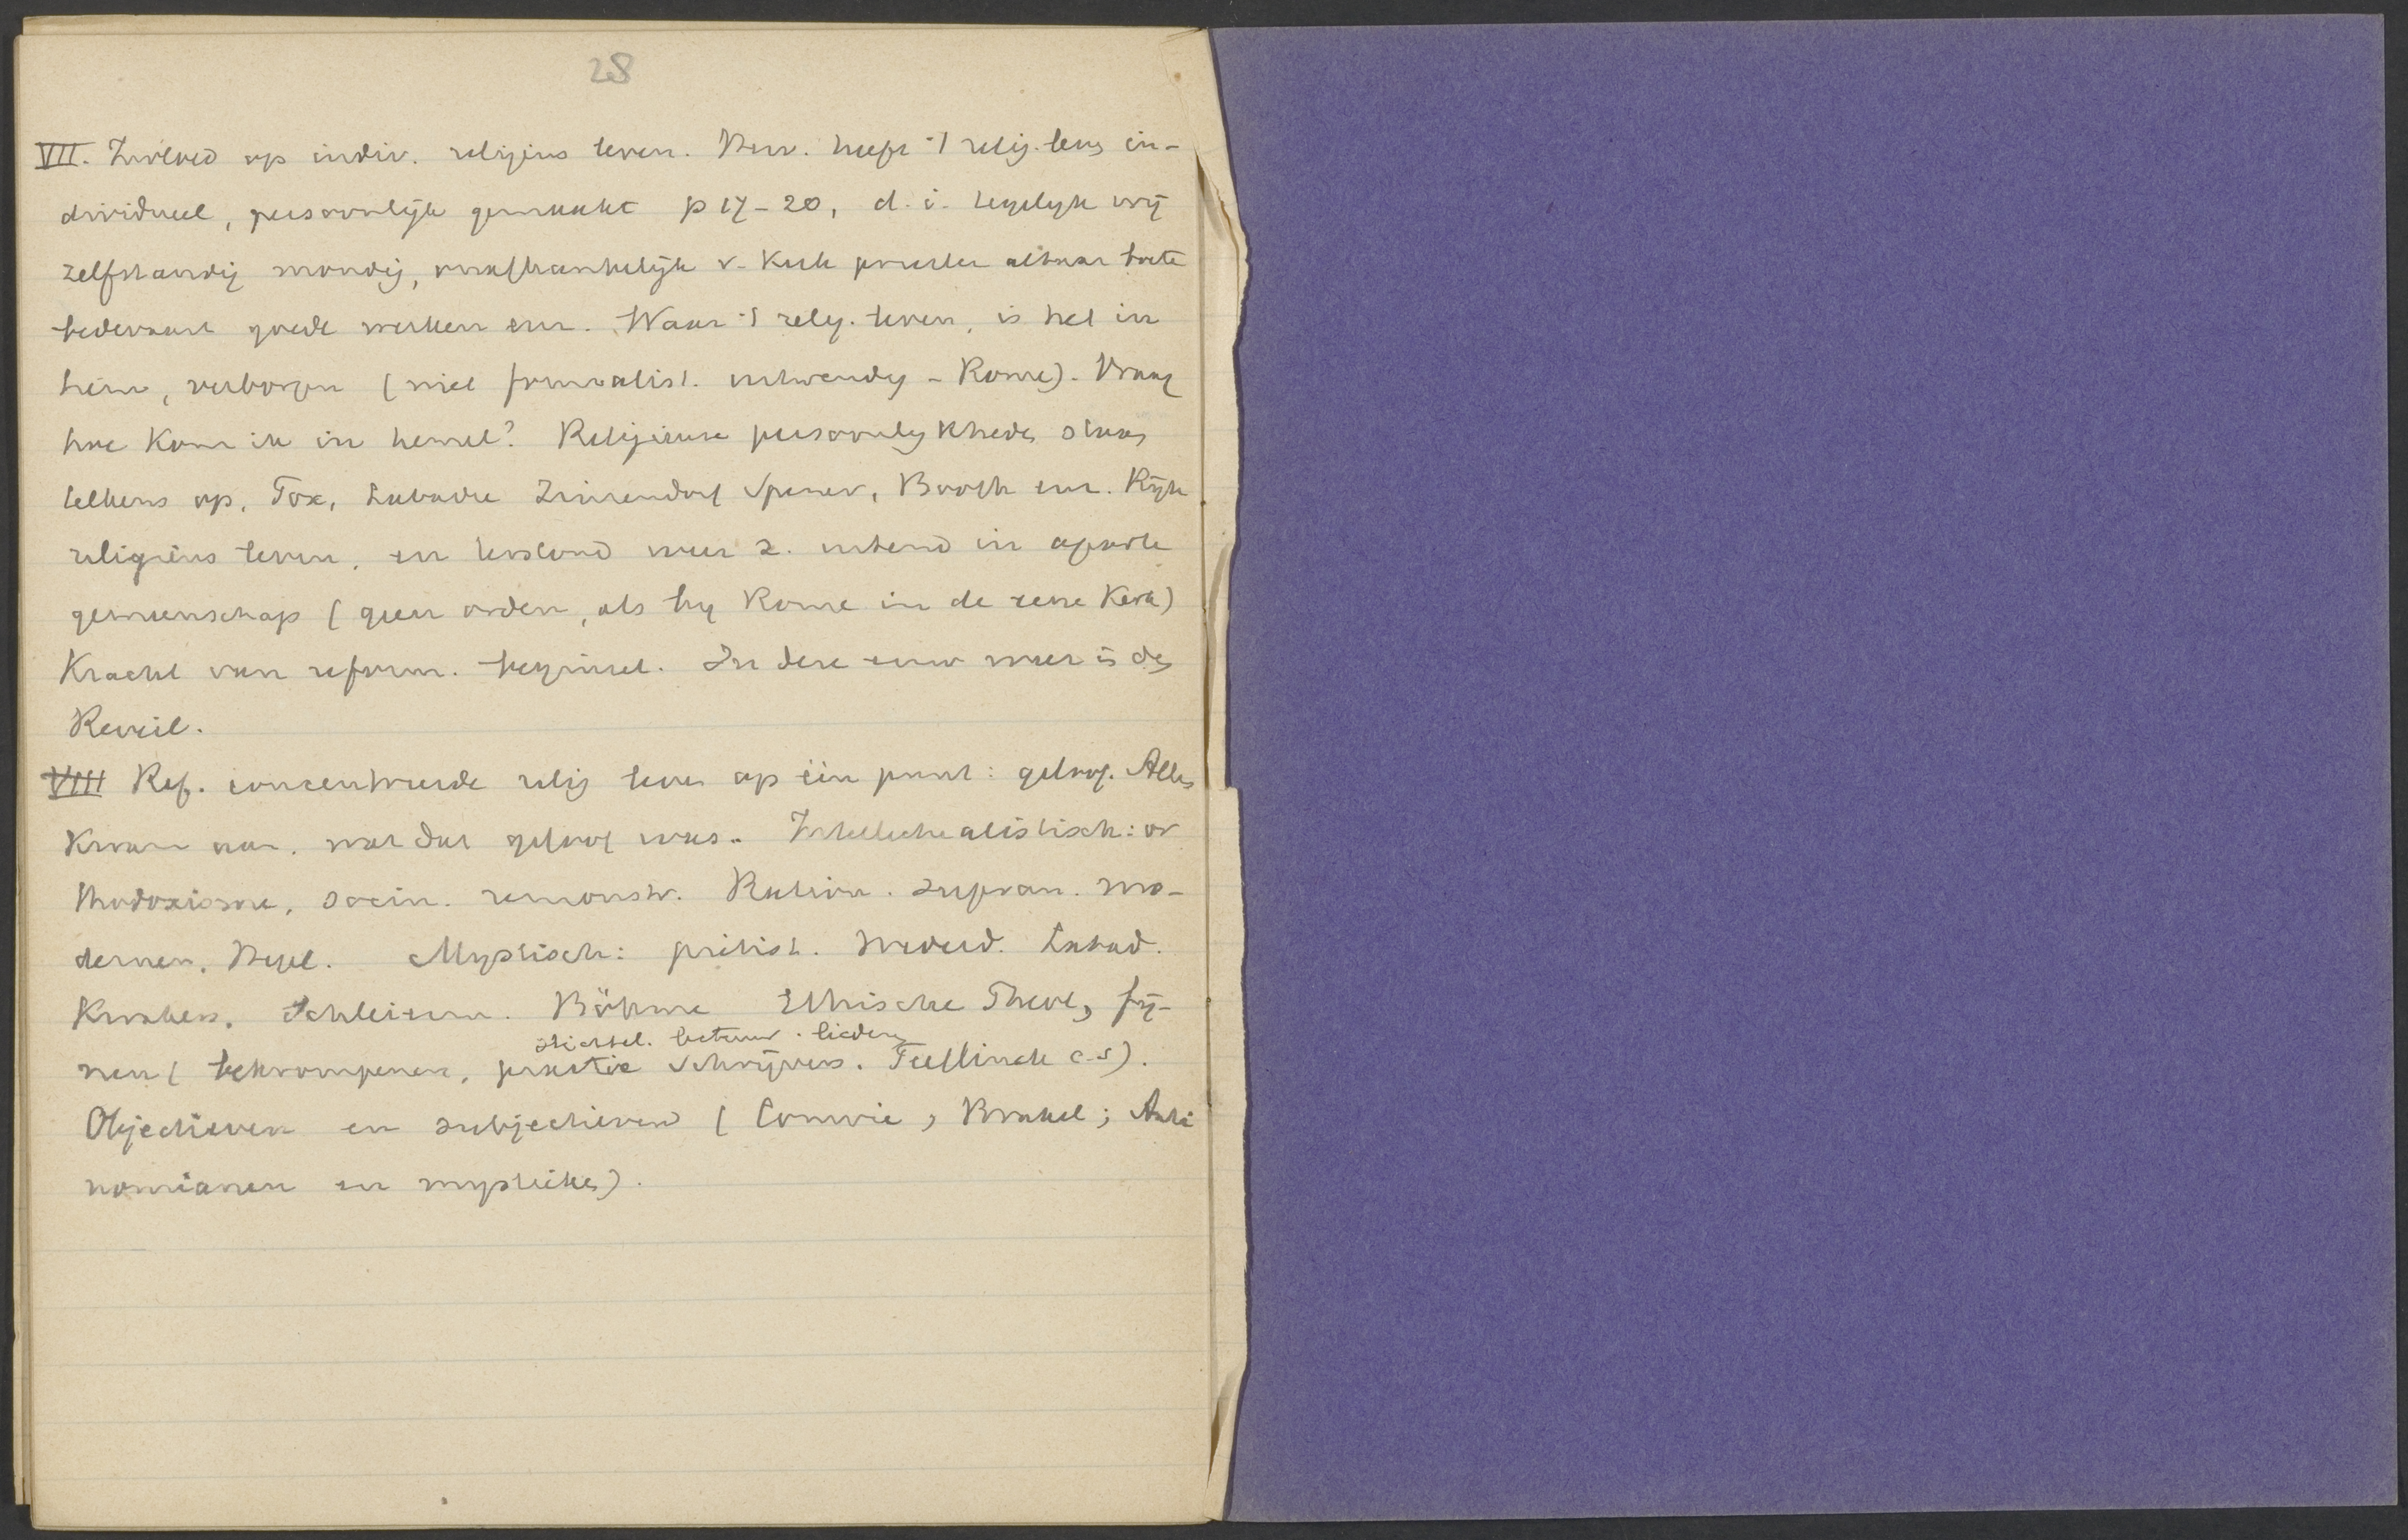 28
VII. Invloed op indiv. religieus leven. Herv. heeft 't relig. leven in-
dividueel, persoonlijk gemaakt p 17-20, d.i. tegelijk vrij
zelfstandig mondig, onafhankelijk v. Kerk priester altaar boete
bedevaart goede werken enz. Waar 't relig. leven, is het in
hem, verborgen (niet formalist. uitwendig - Rome). Vraag
hoe kom ik in hemel? Religieuse persoonlijkheden staan
telkens op, Fox, Labadie Zinzendorf Spener, Booth enz. Rijk
religieus leven, en terstond weer z. uitend in aparte
gemeenschap (geen orden, als bij Rome in de eene Kerk)
Kracht van reform. beginsel. In deze eeuw weer in de
Reveil.
VIII Ref. concentreerde relig leven op één punt: geloof. Alles
kwam aan. wat dat geloof was. Intellectualistisch: or
thodoxisme, socin. remonstr. Ration. supran. mo-
dernen, Hegel. Mystisch: piëtist. Labad.
Kwakers. Schleierm. Böhme Ethische Theol, fij-
stichtel. lectuur. liederen
nen (bekrompenen, practic schrijvers. Teellinck c.s).
Objectieven en subjectieven (Comrie, Brakel; Anti
nomianen en mystieken).